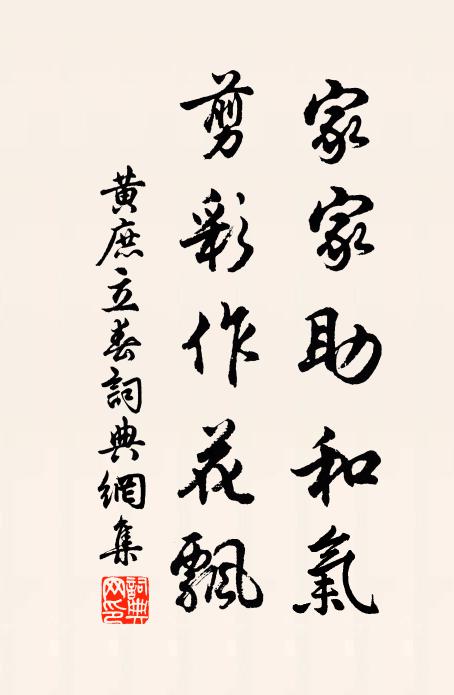 家家助和氣
剪彩作花飄
黃庶立春詞典網集
詞典網印